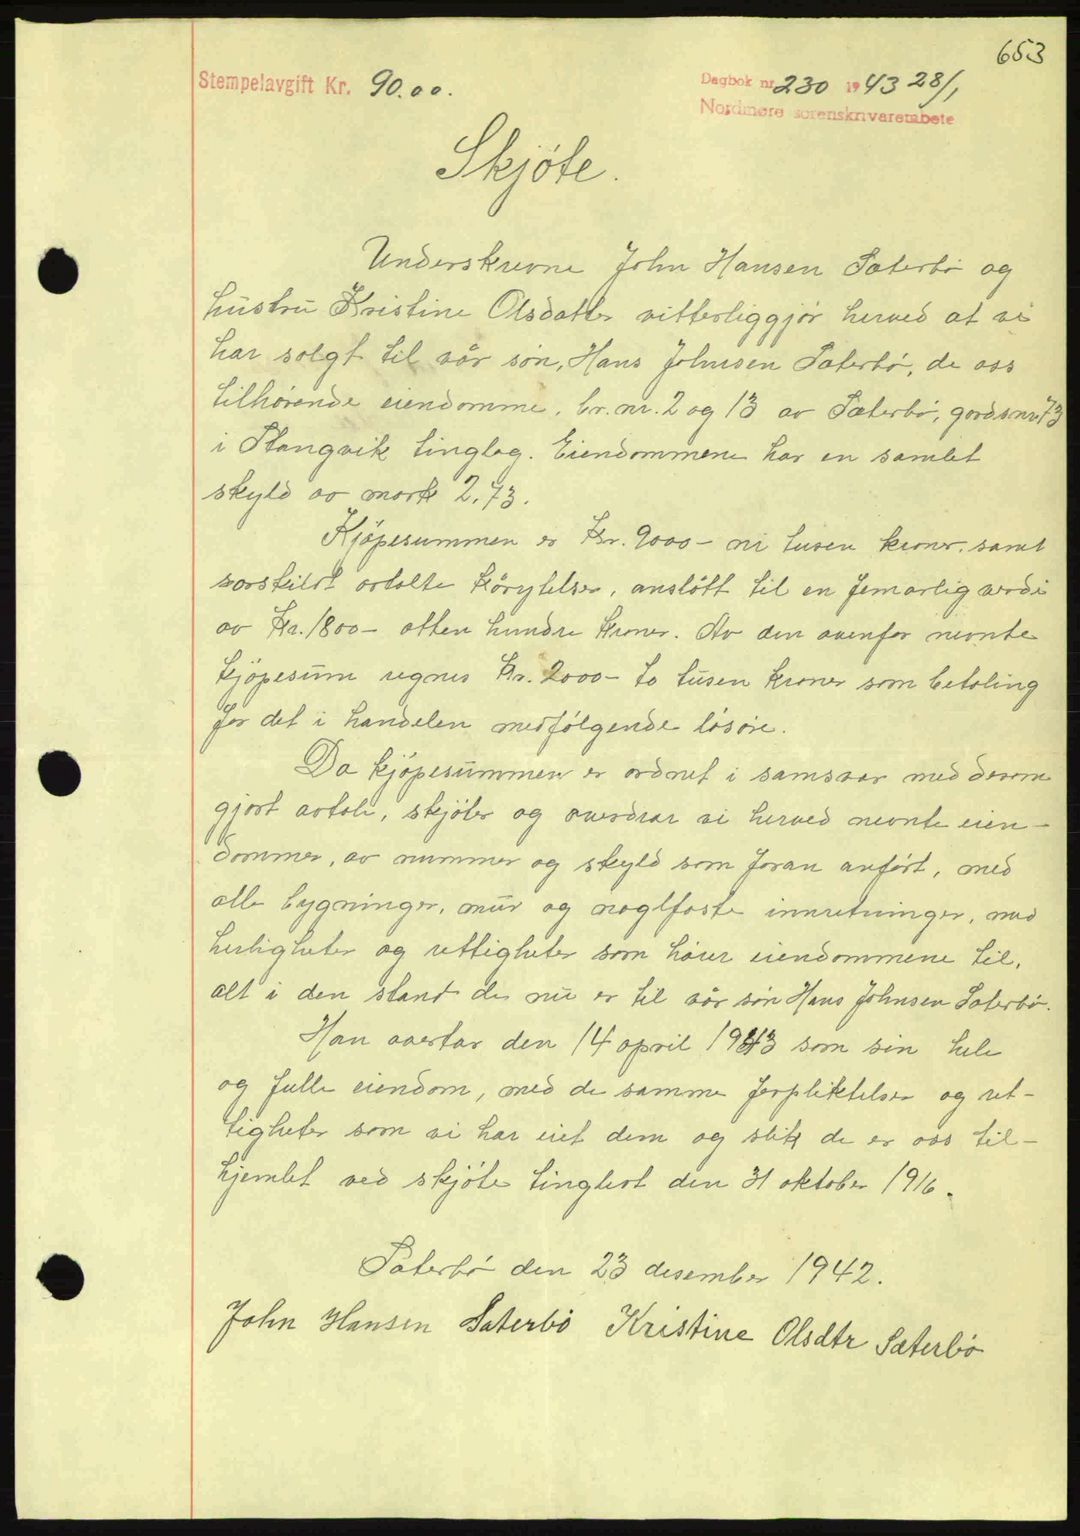 653
Stempelavgift Kr. 90.00.
Dagbok nr 230 1943 28/1
Nordmøre sorenskriverembete
Skjøte.
Underskrevne John Hansen Sæterbø og
hustru Kristine Olsdatter vitterliggjør herved at vi
har solgt til vår søn, Hans Johnsen Sæterbø, de oss
tilhørende eiendomme, br.nr. 2 og 13 av Sæterbø, gardsnr 73
i Stangvik tinglag. Eiendommene har en samlet
skyld av mark 2,73.
Kjøpesummen er kr. 9000- ni tusen kroner, samt
særskildt avtalte kårytelser, anslått til en femårlig verdi
av kr. 1800- atten hundre kroner. Av den ovenfor nevnte
kjøpesum regnes kr. 2000- to tusen kroner som betaling
for det i handelen medfølgende løsøre.
Da kjøpesummen er ordnet i samsvar med derom
gjort avtale, skjøter og overdrar vi herved nevnte eien-
dommer, av nummer og skyld som foran anført, med
alle bygninger, mur og naglfaste innretninger, med
herligheter og rettigheter som hører eiendommene til,
alt i den stand de nu er til vår søn Hans Johnsen Sæterbø.
Han overtar den 14 april 1943 som sin hele
og fulle eiendom, med de samme forpliktelser og ret-
tigheter som vi har eiet dem og slik de er oss til-
hjemlet ved skjøte tinglest den 31 oktober 1916.
Sæterbø den 23 desember 1942.
John Hansen Sæterbø Kristine Olsdtr Sæterbø